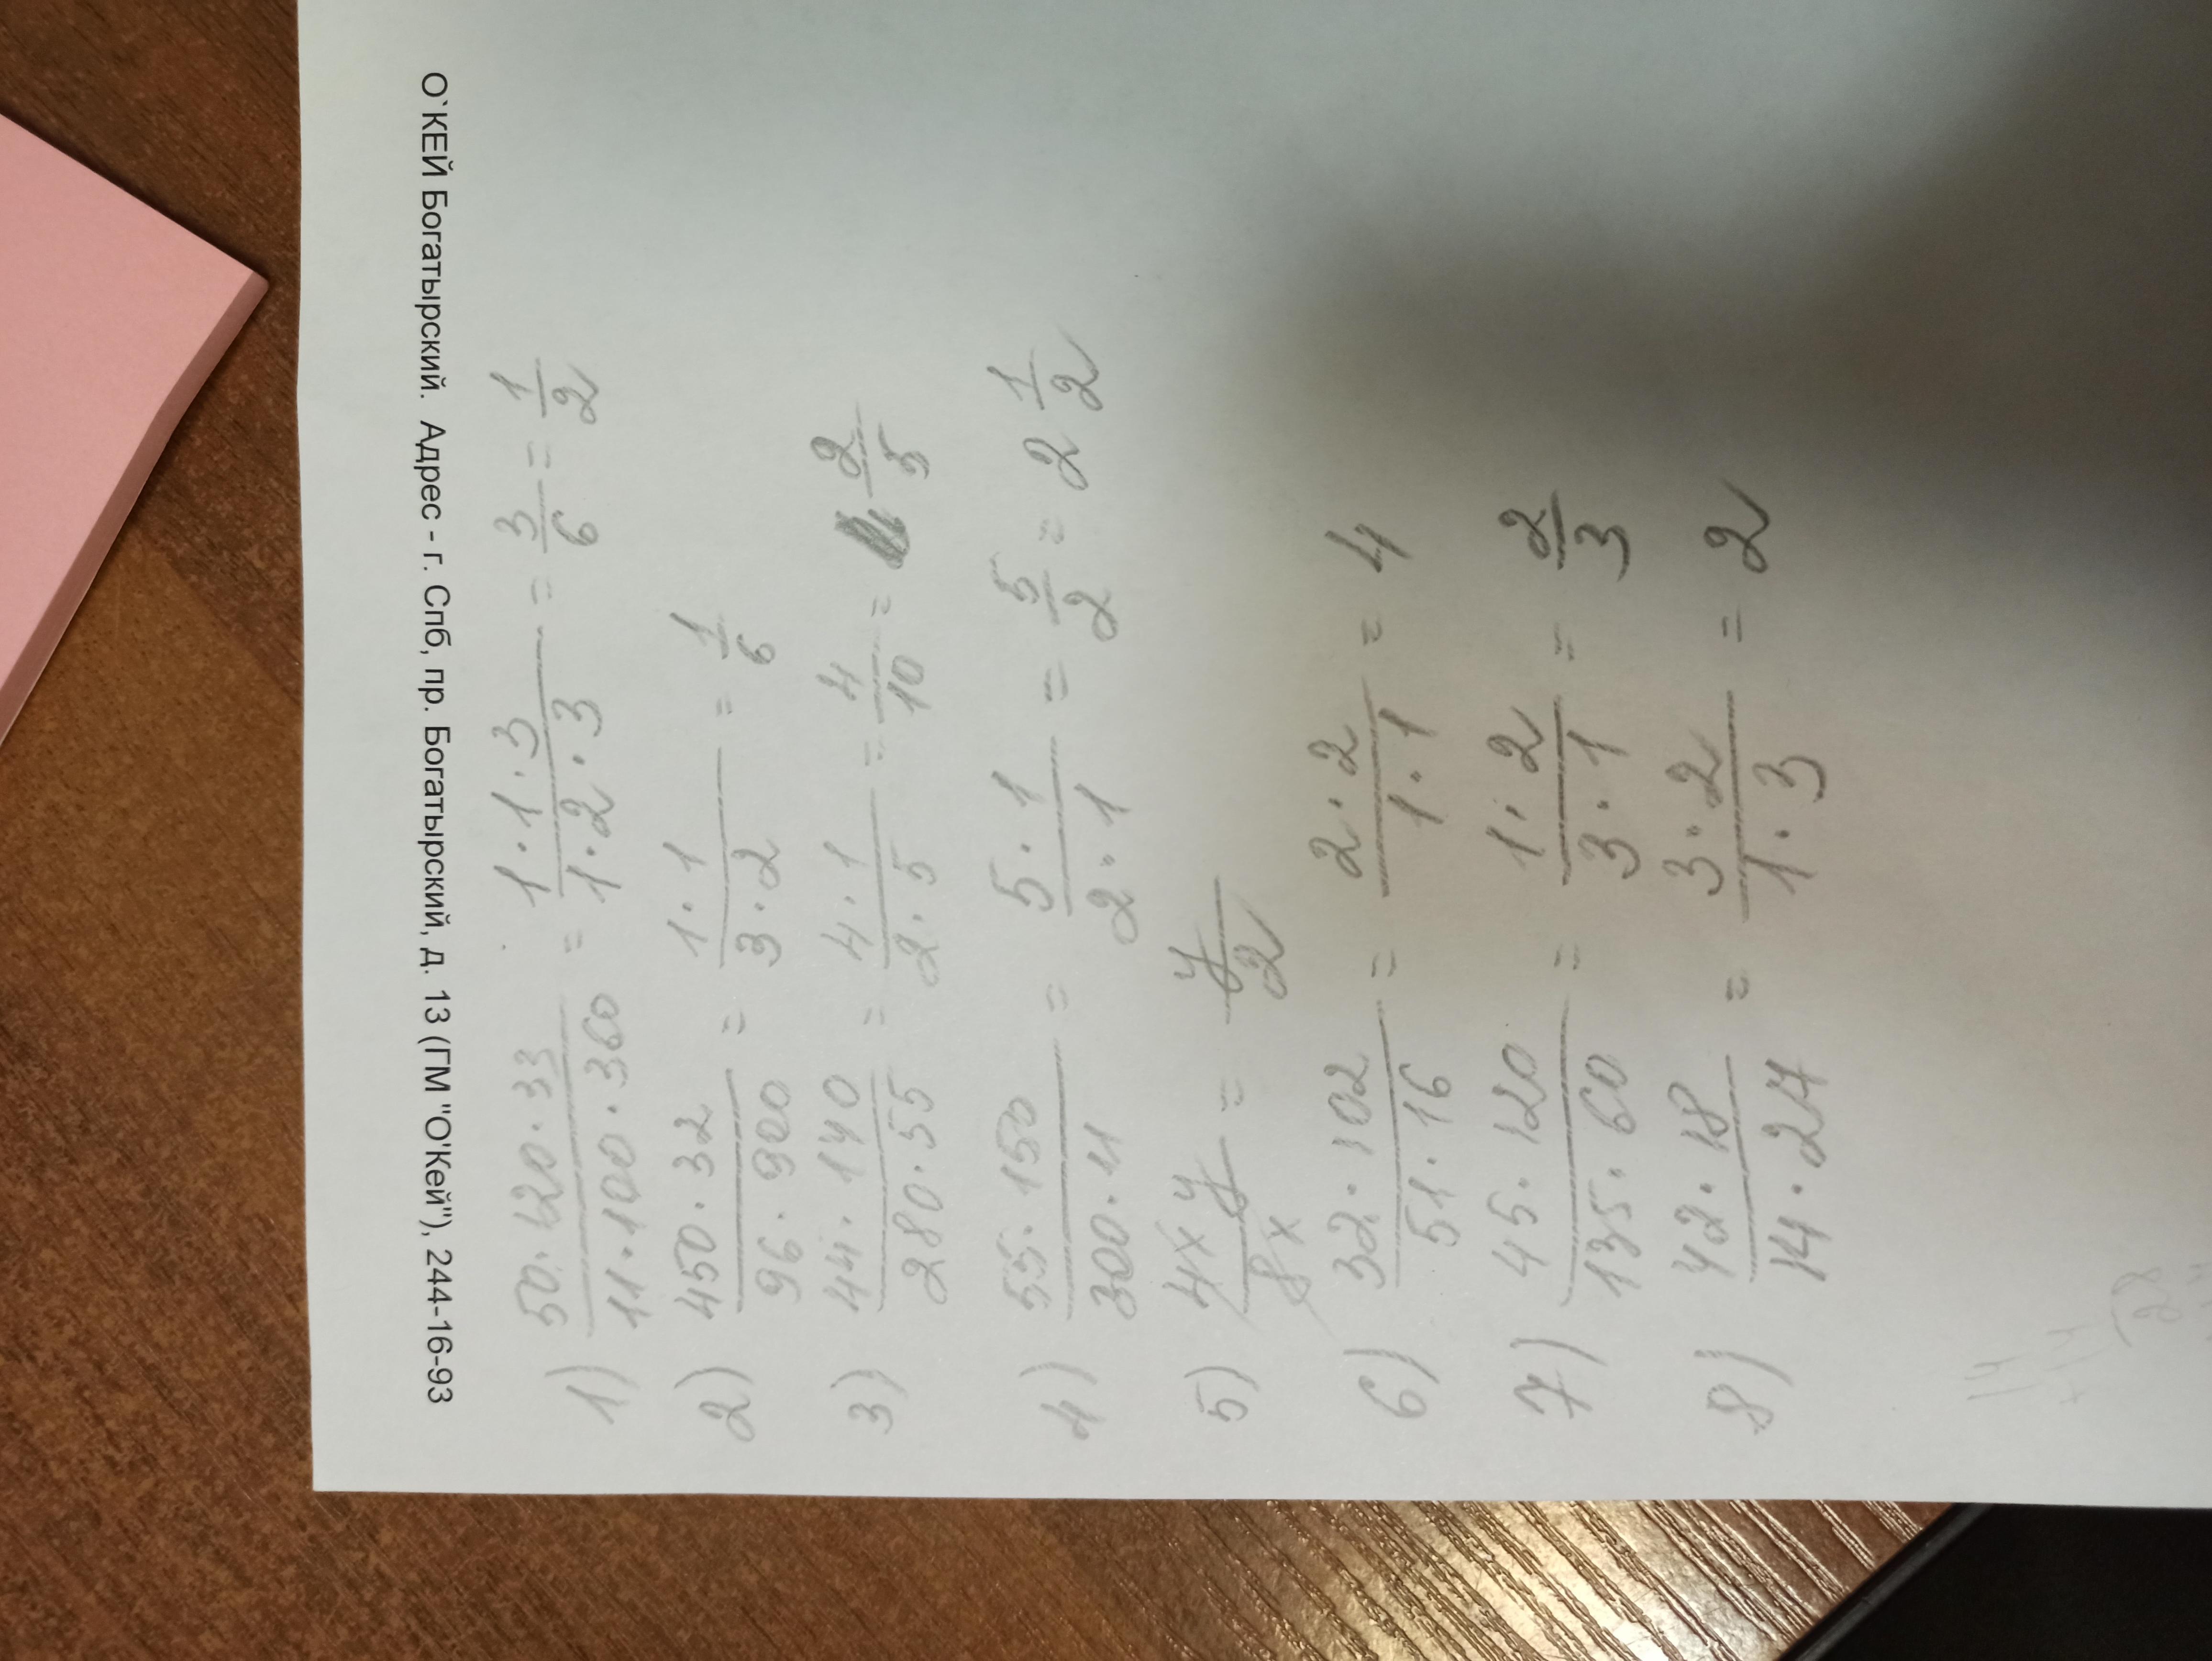 О`КЕЙ Богатырский. Адрес - г. Спб, пр. Богатырский, д. 13 (ГМ "О'Кей"), 244-16-93
1) 50·120·33/11·100·360 = 1·1·3/1·2·3 = 3/6 = 1/2
2) 450·32/96·900 = 1·1/3·2 = 1/6
3) 44·140/280·55 = 4·1/2·5 = 4/10 = 2/5
4) 55·150/300·11 = 5·1/2·1 = 5/2 = 2 1/2
5) 4xy/8x = y/2
6) 32·102/51·16 = 2·2/1·1 = 4
7) 45·120/135·60 = 1·2/3·1 = 2/3
8) 42·18/14·27 = 3·2/1·3 = 2
14
28